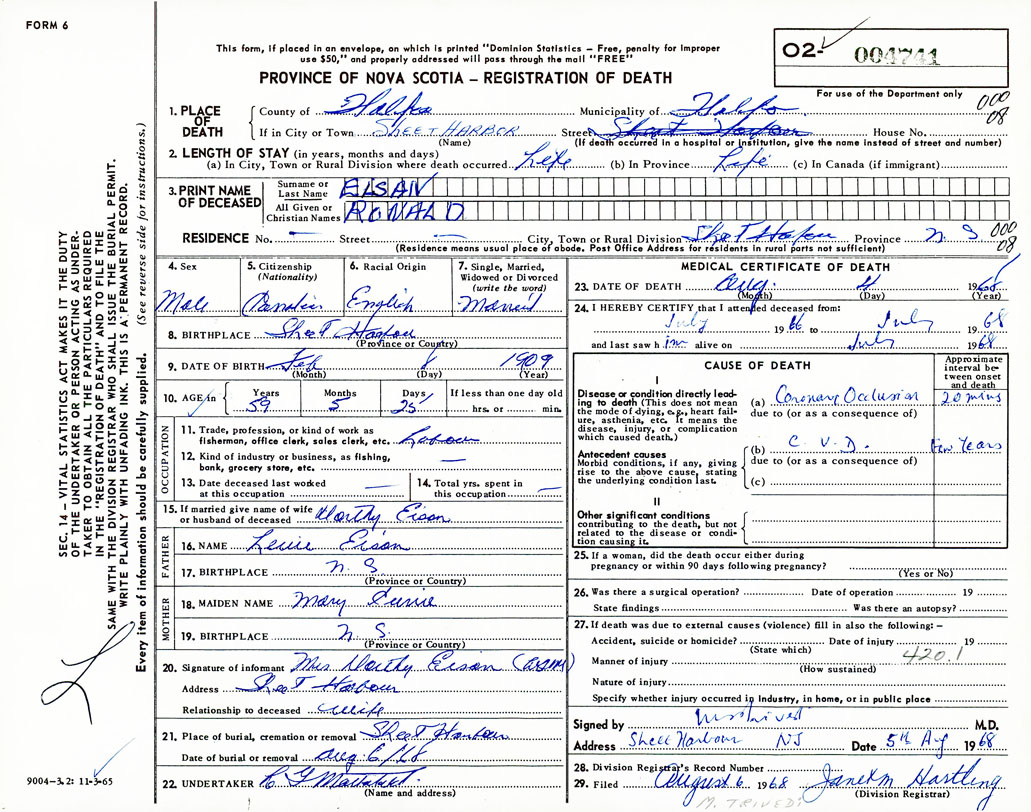 FORM 6
This form, if placed in an envelope, on which is printed "Dominion Statistics – Free, penalty for improper
use $50," and properly addressed will pass through the mail "FREE"
PROVINCE OF NOVA SCOTIA – REGISTRATION OF DEATH
O2- 004741
For use of the Department only
000
08
1. PLACE OF DEATH
County of Halifax Municipality of Halifax
If in City or Town SHEET HARBOR Street Sheet Harbour House No.
(Name) (If death occurred in a hospital or institution, give the name instead of street and number)
2. LENGTH OF STAY (in years, months and days)
(a) In City, Town or Rural Division where death occurred Life (b) In Province Life (c) In Canada (if immigrant)
3. PRINT NAME OF DECEASED
Surname or Last Name EISAN
All Given or Christian Names RONALD
RESIDENCE No. Street City, Town or Rural Division Sheet Harbour Province N. S 000 08
(Residence means usual place of abode. Post Office Address for residents in rural parts not sufficient)
4. Sex
Male
5. Citizenship
(Nationality)
Canadian
6. Racial Origin
English
7. Single, Married,
Widowed or Divorced
(write the word)
Married
8. BIRTHPLACE Sheet Harbour
(Province or Country)
9. DATE OF BIRTH Feb 8 1909
(Month) (Day) (Year)
10. AGE in
Years Months Days If less than one day old
59 5 25 hrs. or min.
OCCUPATION
11. Trade, profession, or kind of work as
fisherman, office clerk, sales clerk, etc. Labour
12. Kind of industry or business, as fishing,
bank, grocery store, etc.
13. Date deceased last worked
at this occupation
14. Total yrs. spent in
this occupation
15. If married give name of wife
or husband of deceased Dorthy Eisan
FATHER
16. NAME Eisan
17. BIRTHPLACE N. S
(Province or Country)
MOTHER
18. MAIDEN NAME Mary
19. BIRTHPLACE N. S.
(Province or Country)
20. Signature of informant Mrs Dorthy Eisan
Address Sheet Harbour
Relationship to deceased Wife
21. Place of burial, cremation or removal Sheet Harbour
Date of burial or removal Aug 6/68
22. UNDERTAKER
(Name and address)
MEDICAL CERTIFICATE OF DEATH
23. DATE OF DEATH Aug. 4 1968
(Month) (Day) (Year)
24. I HEREBY CERTIFY that I attended deceased from:
July 1966 to July 1968
and last saw him alive on July 1968
CAUSE OF DEATH
Approximate
interval be-
tween onset
and death
I
Disease or condition directly lead-
ing to death (This does not mean
the mode of dying, e.g., heart fail-
ure, asthenia, etc. It means the
disease, injury, or complication
which caused death.)
(a) Coronary Occlusion 20 mins
due to (or as a consequence of)
Antecedent causes
Morbid conditions, if any, giving
rise to the above cause, stating
the underlying condition last.
(b) C. V. D. Few Years
due to (or as a consequence of)
(c)
II
Other significant conditions
contributing to the death, but not
related to the disease or condi-
tion causing it.
25. If a woman, did the death occur either during
pregnancy or within 90 days following pregnancy?
(Yes or No)
26. Was there a surgical operation? Date of operation 19
State findings Was there an autopsy?
27. If death was due to external causes (violence) fill in also the following: –
Accident, suicide or homicide? Date of injury 19
(State which)
420.1
Manner of injury
(How sustained)
Nature of injury
Specify whether injury occurred in Industry, in home, or in public place
Signed by M.D.
Address Sheet Harbour NS Date 5th Aug 1968
28. Division Registrar's Record Number
29. Filed August 6 1968 Janet M Hartling
(Division Registrar)
M. TRIVEDI
SEC. 14 – VITAL STATISTICS ACT MAKES IT THE DUTY
OF THE UNDERTAKER OR PERSON ACTING AS UNDER-
TAKER TO OBTAIN ALL THE PARTICULARS REQUIRED
IN THE "REGISTRATION OF DEATH" AND TO FILE THE
SAME WITH THE DIVISION REGISTRAR WHO SHALL ISSUE THE BURIAL PERMIT.
WRITE PLAINLY WITH UNFADING INK. THIS IS A PERMANENT RECORD.
Every item of information should be carefully supplied. (See reverse side for instructions.)
9004-3.2: 11-3-65